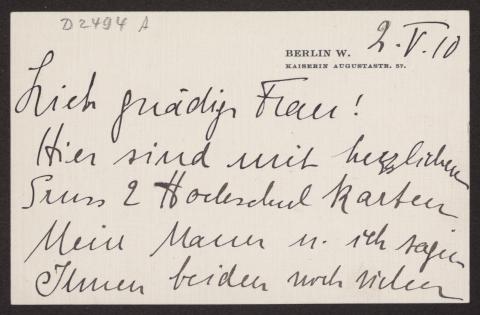 D 2494 A
BERLIN W. 2.V.10
KAISERIN AUGUSTASTR. 57.
Lieb gnädige Frau!
Hier sind mit herzlichem
Gruss 2 Hochschul Karten
Mein Mann u. ich sagen
Ihnen beiden noch vielen